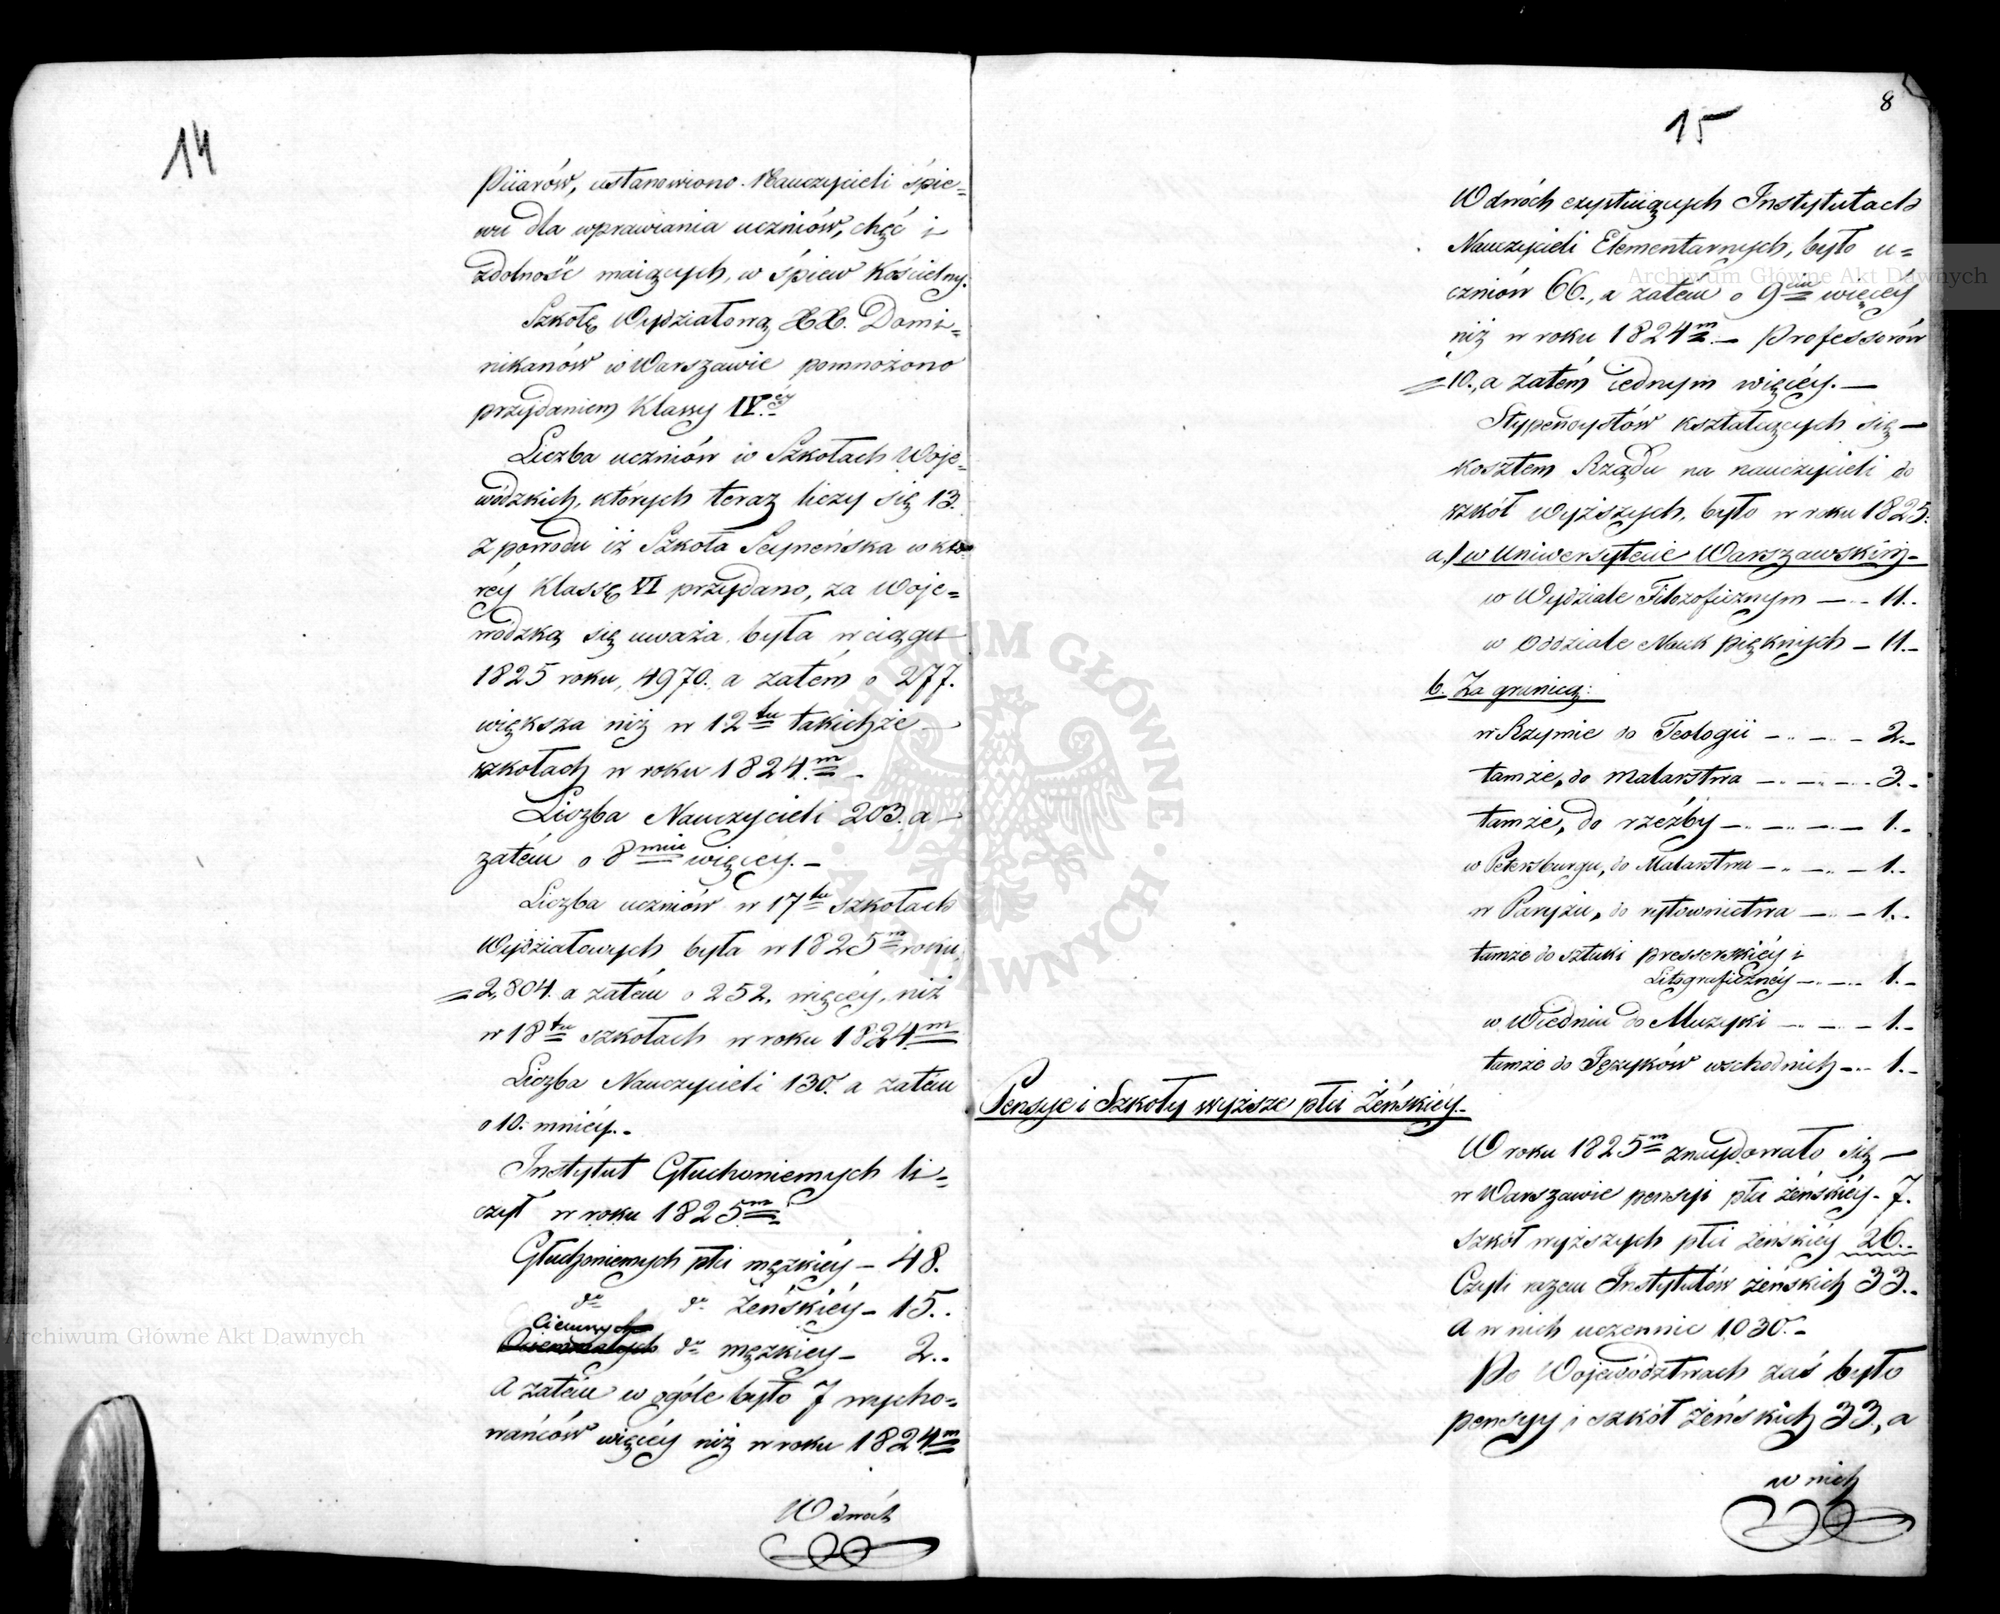 14
Pijarów, ustanowiono Nauczycieli śpie=
wu dla wprawiania uczniów, chęć i
zdolność maiących, w śpiew Kościelny.
Szkołę Wydziałową XX. Domi=
nikanów w Warszawie pomnożono
przydaniem Klassy IV.ey
Liczba uczniów w Szkołach Woje=
wódzkich, których teraz liczy się 13.
z powodu iż Szkoła Seyneńska w któ=
réy Klassę VI przydano, za Woje=
wódzką się uważa, była w ciągu
1825 roku, 4970. a zatém o 277.
większa niż w 12tu takichże
szkołach w roku 1824.m –
Liczba Nauczycieli 203. a –
zatém o 8miu więcéy. –
Liczba uczniów w 17tu szkołach
Wydziałowych była w 1825m roku,
2,804. a zatém o 252. więcéy, niż
w 18tu szkołach w roku 1824.m
Liczba Nauczycieli 130. a zatém
o 10. mniéy. –
Instytut Głuchoniemych li=
czył w roku 1825m.
Głuchoniemych płci męzkiéy – 48.
do do żeńskiéy – 15..
Ciemnych
do męzkiey – 2..
A zatém w ogóle było 7 wycho=
wańców więcéy niż w roku 1824m
W dwóch
8
15
W dwóch exystuiących Instytutach
Nauczycieli Elementarnych, było u=
czniów 66., a zatém o 9ciu więcey
niż w roku 1824m. – Professorów
10., a zatém iednym więcéy. –
Stypendystów kształcących się –
kosztem Rządu na nauczycieli do
szkół wyższych, było w roku 1825.
a.) w Uniwersytecie Warszawskim –
w Wydziale Filozoficznym – .. 11..
w Oddziale Nauk pięknych – 11. –
b. Za granicą:
w Rzymie do Teologii – .. – .. – 2. –
tamże, do malarstwa – .. – .. – .. 3. –
tamże, do rzeźby – .. – .. – .. – 1. –
w Petersburgu, do Malarstwa – .. – .. – 1. –
w Paryżu, do rytownictwa – .. – 1..
tamże do sztuki presserskiéy i
Litograficznéy – .. – .. 1. –
w Wiedniu do Muzyki – .. – .. – 1. –
tamże do Języków wschodnich – .. – 1. –
Pensye i Szkoły wyższe płci Żeńskiéy. –
W roku 1825m znaydowało się –
w Warszawie pensyi płci żeńskiéy – 7.
Szkół wyższych płci żeńskiéy 26..
Czyli razem Instytutów żeńskich 33..
A w nich uczennic 1030. –
Po Województwach zaś było
pensyy i szkół żeńskich 33., a
w nich
ARCHIWUM GŁÓWNE
AKT DAWNYCH
Archiwum Główne Akt Dawnych
Archiwum Główne Akt Dawnych